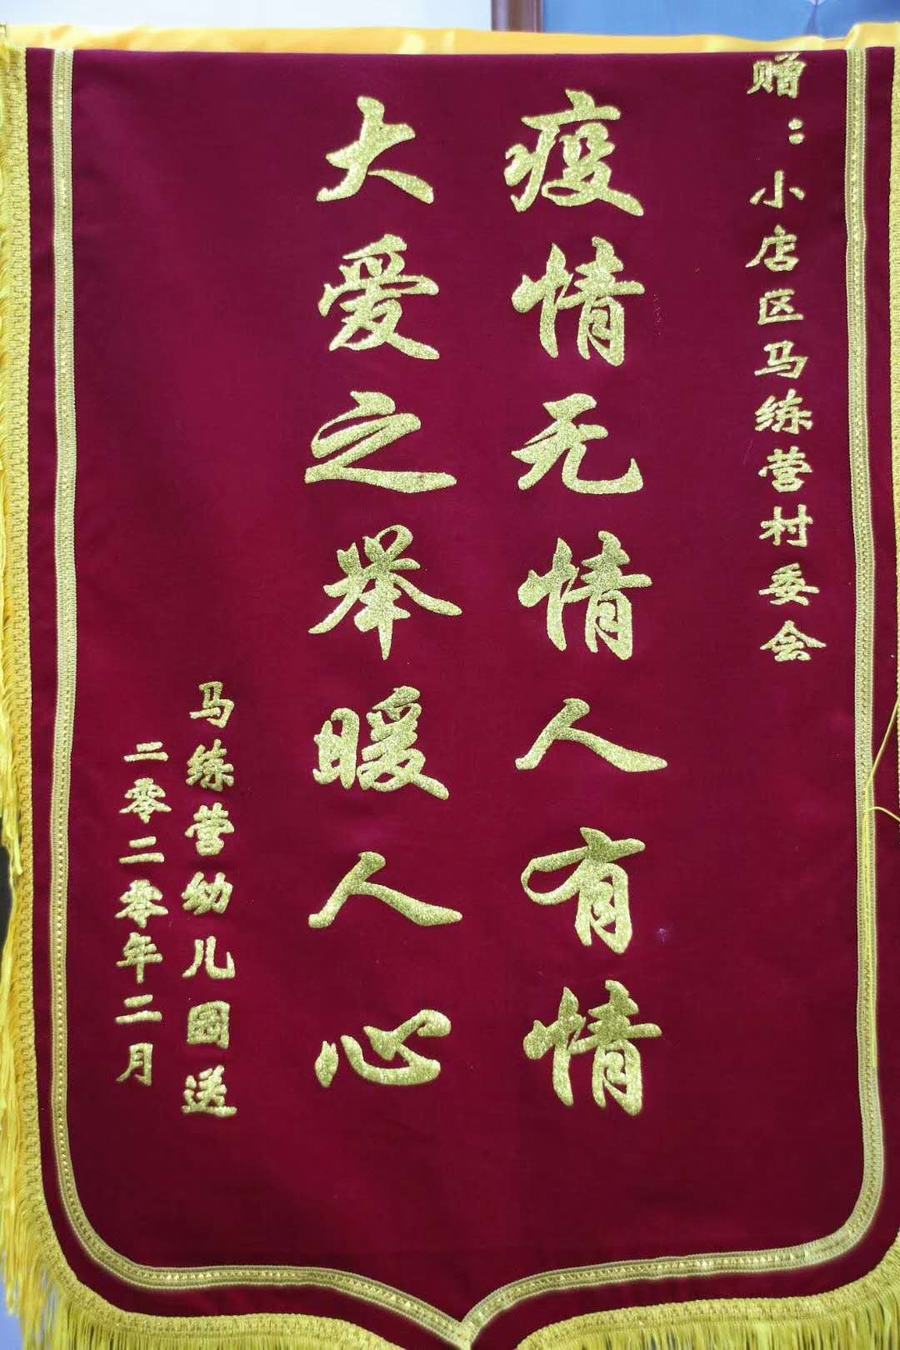 赠：小店区马练营村委会
疫情无情人有情
大爱之举暖人心
马练营幼儿园送
二零二零年二月